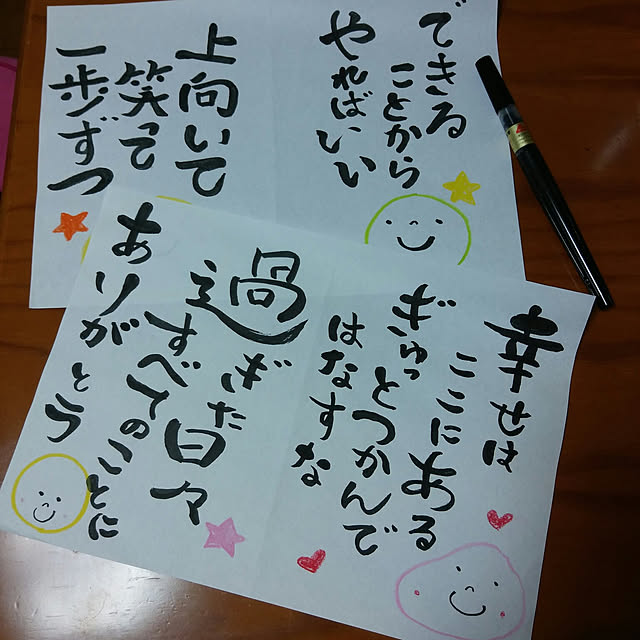 できる
ことから
やればいい
上向いて
笑って
一歩ずつ
幸せは
ここにある
ぎゅっとつかんで
はなすな
過ぎた日々
すべてのことに
ありがとう